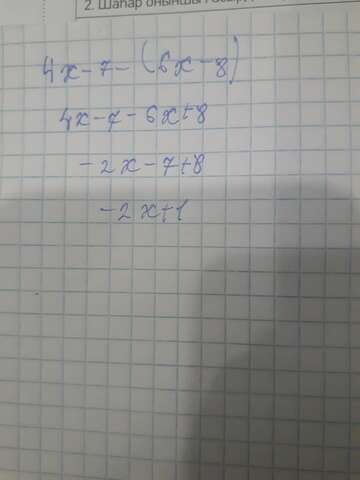 2. Шаһар оныншы
4x-7-(6x-8)
4x-7-6x+8
-2x-7+8
-2x+1